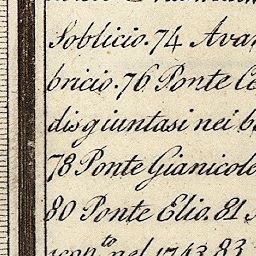 Soblicio. 74 Ava
bricio. 76 Ponte Ce
disgiuntasi nei b
78 Ponte Gianicole
80 Ponte Elio. 81
nel 1743. 83.